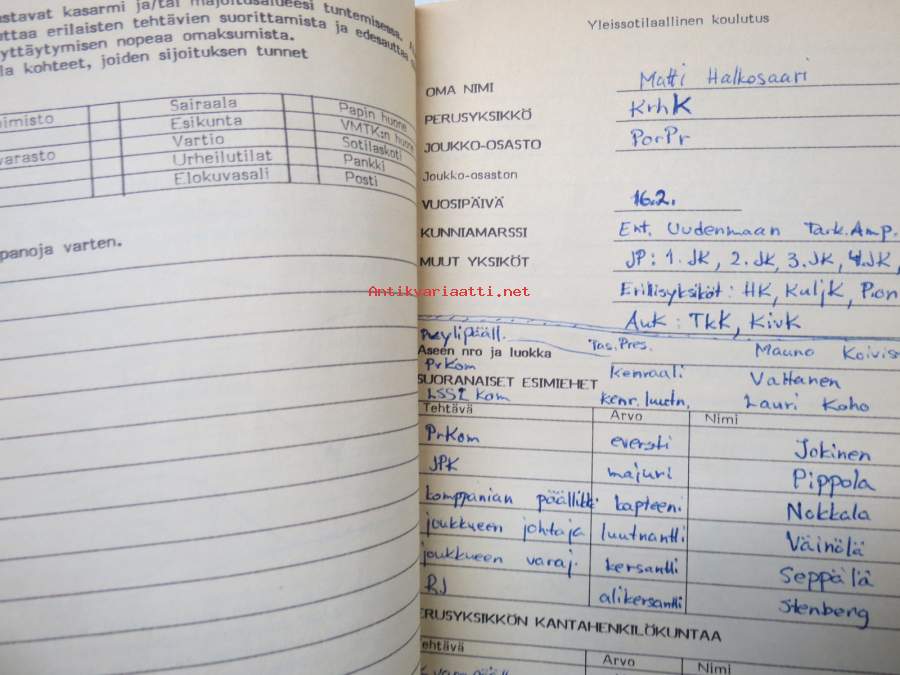 ustavat kasarmi ja/tai majoitusalueesi tuntemisessa.
uttaa erilaisten tehtävien suorittamista ja edesauttaa
yttäytymisen nopeaa omaksumista.
la kohteet, joiden sijoituksen tunnet
oimisto Sairaala Papin huone
Esikunta VMTK:n huone
varasto Vartio Sotilaskoti
Urheilutilat Pankki
Elokuvasali Posti
panoja varten.
Yleissotilaallinen koulutus
OMA NIMI Matti Halkosaari
PERUSYKSIKKÖ KrhK
JOUKKO-OSASTO PorPr
Joukko-osaston
VUOSIPÄIVÄ 16.2.
KUNNIAMARSSI Ent. Uudenmaan Tark.Amp.
MUUT YKSIKÖT JP: 1.JK, 2.JK, 3.JK, 4.JK,
Antikvariaatti.net
Erillisyksiköt: HK, KuljK, Pion
AuK: TkK, KivK
ylipääll. Tas.Pres. Mauno Koivis
Aseen nro ja luokka
PrKom kenraali Valtanen
SUORANAISET ESIMIEHET
kom kenr.luutn. Lauri Koho
Tehtävä Arvo Nimi
PrKom eversti Jokinen
JPK majuri Pippola
komppanian päällikk. kapteeni Nokkala
joukkueen johtaja luutnantti Väinölä
joukkueen varaj. kersantti Seppälä
RJ alikersantti Stenberg
ERUSYKSIKKÖN KANTAHENKILÖKUNTAA
Tehtävä Arvo Nimi